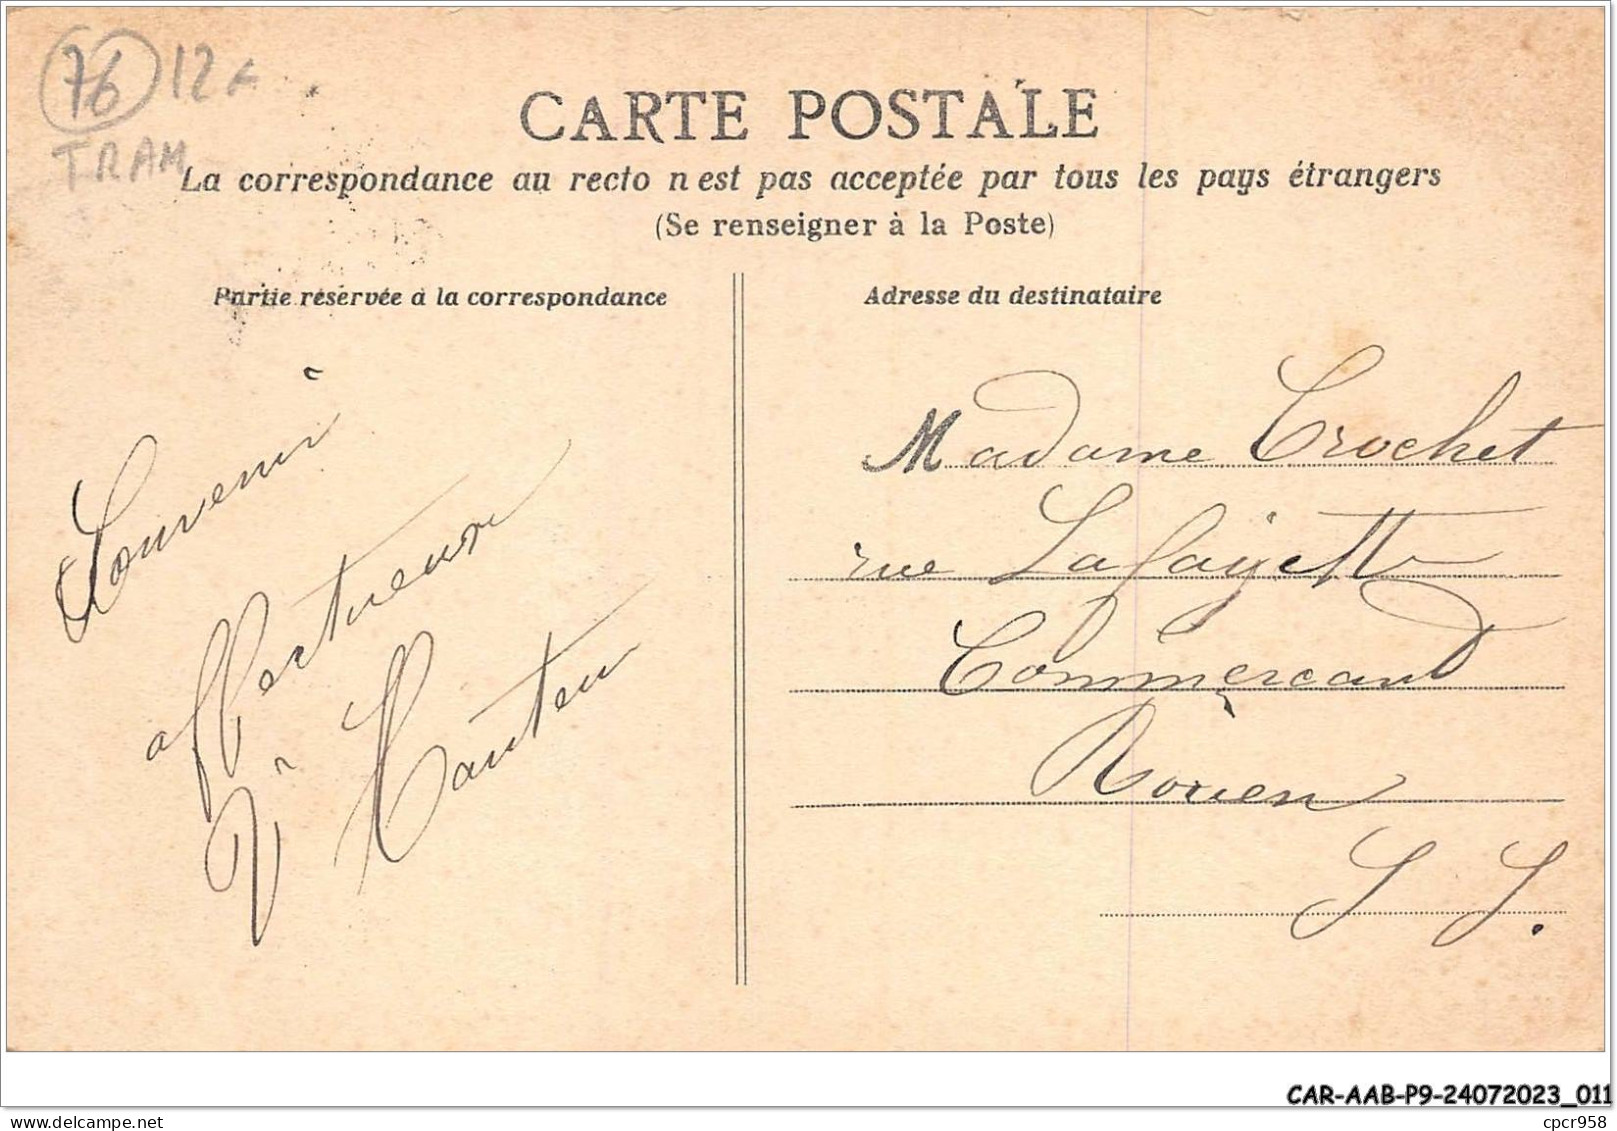 76 12F
TRAM
CARTE POSTALE
La correspondance au recto n'est pas acceptée par tous les pays étrangers
(Se renseigner à la Poste)
Partie réservée à la correspondance
Adresse du destinataire
Souvenir
affectueux
Madame Crochet
rue Lafayette
Commerçant
Rouen
S I.
CAR-AAB-P9-24072023_011
cpcr958